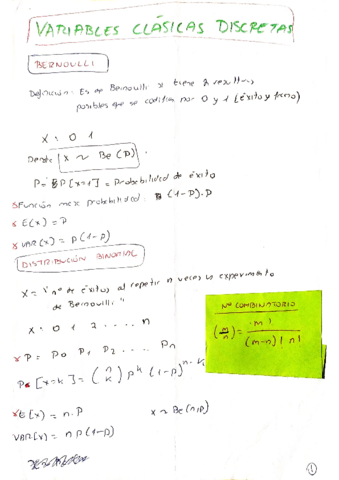 VARIABLES CLÁSICAS DISCRETAS
BERNOULLI
Definición: Es de Bernoulli si tiene 2 resultados
posibles que se codifican por 0 y 1 (éxito y fracaso)
X = 0 1
Donde X ~ Be (p)
P = P[x=1] = Probabilidad de éxito
Función masa probabilidad: (1-p).p
* E(x) = p
* VAR(x) = p(1-p)
DISTRIBUCIÓN BINOMIAL
X = "nº de éxitos al repetir n veces un experimento
de Bernoulli"
X = 0 1 2 .... n
* P = P0 P1 P2 .... Pn
P[x=k] = (n k) p^k (1-p)^n-k
Nº COMBINATORIO
(m n) = m! / (m-n)! n!
* E(x) = n.p
x ~ Be(n,p)
VAR(x) = n p(1-p)
1